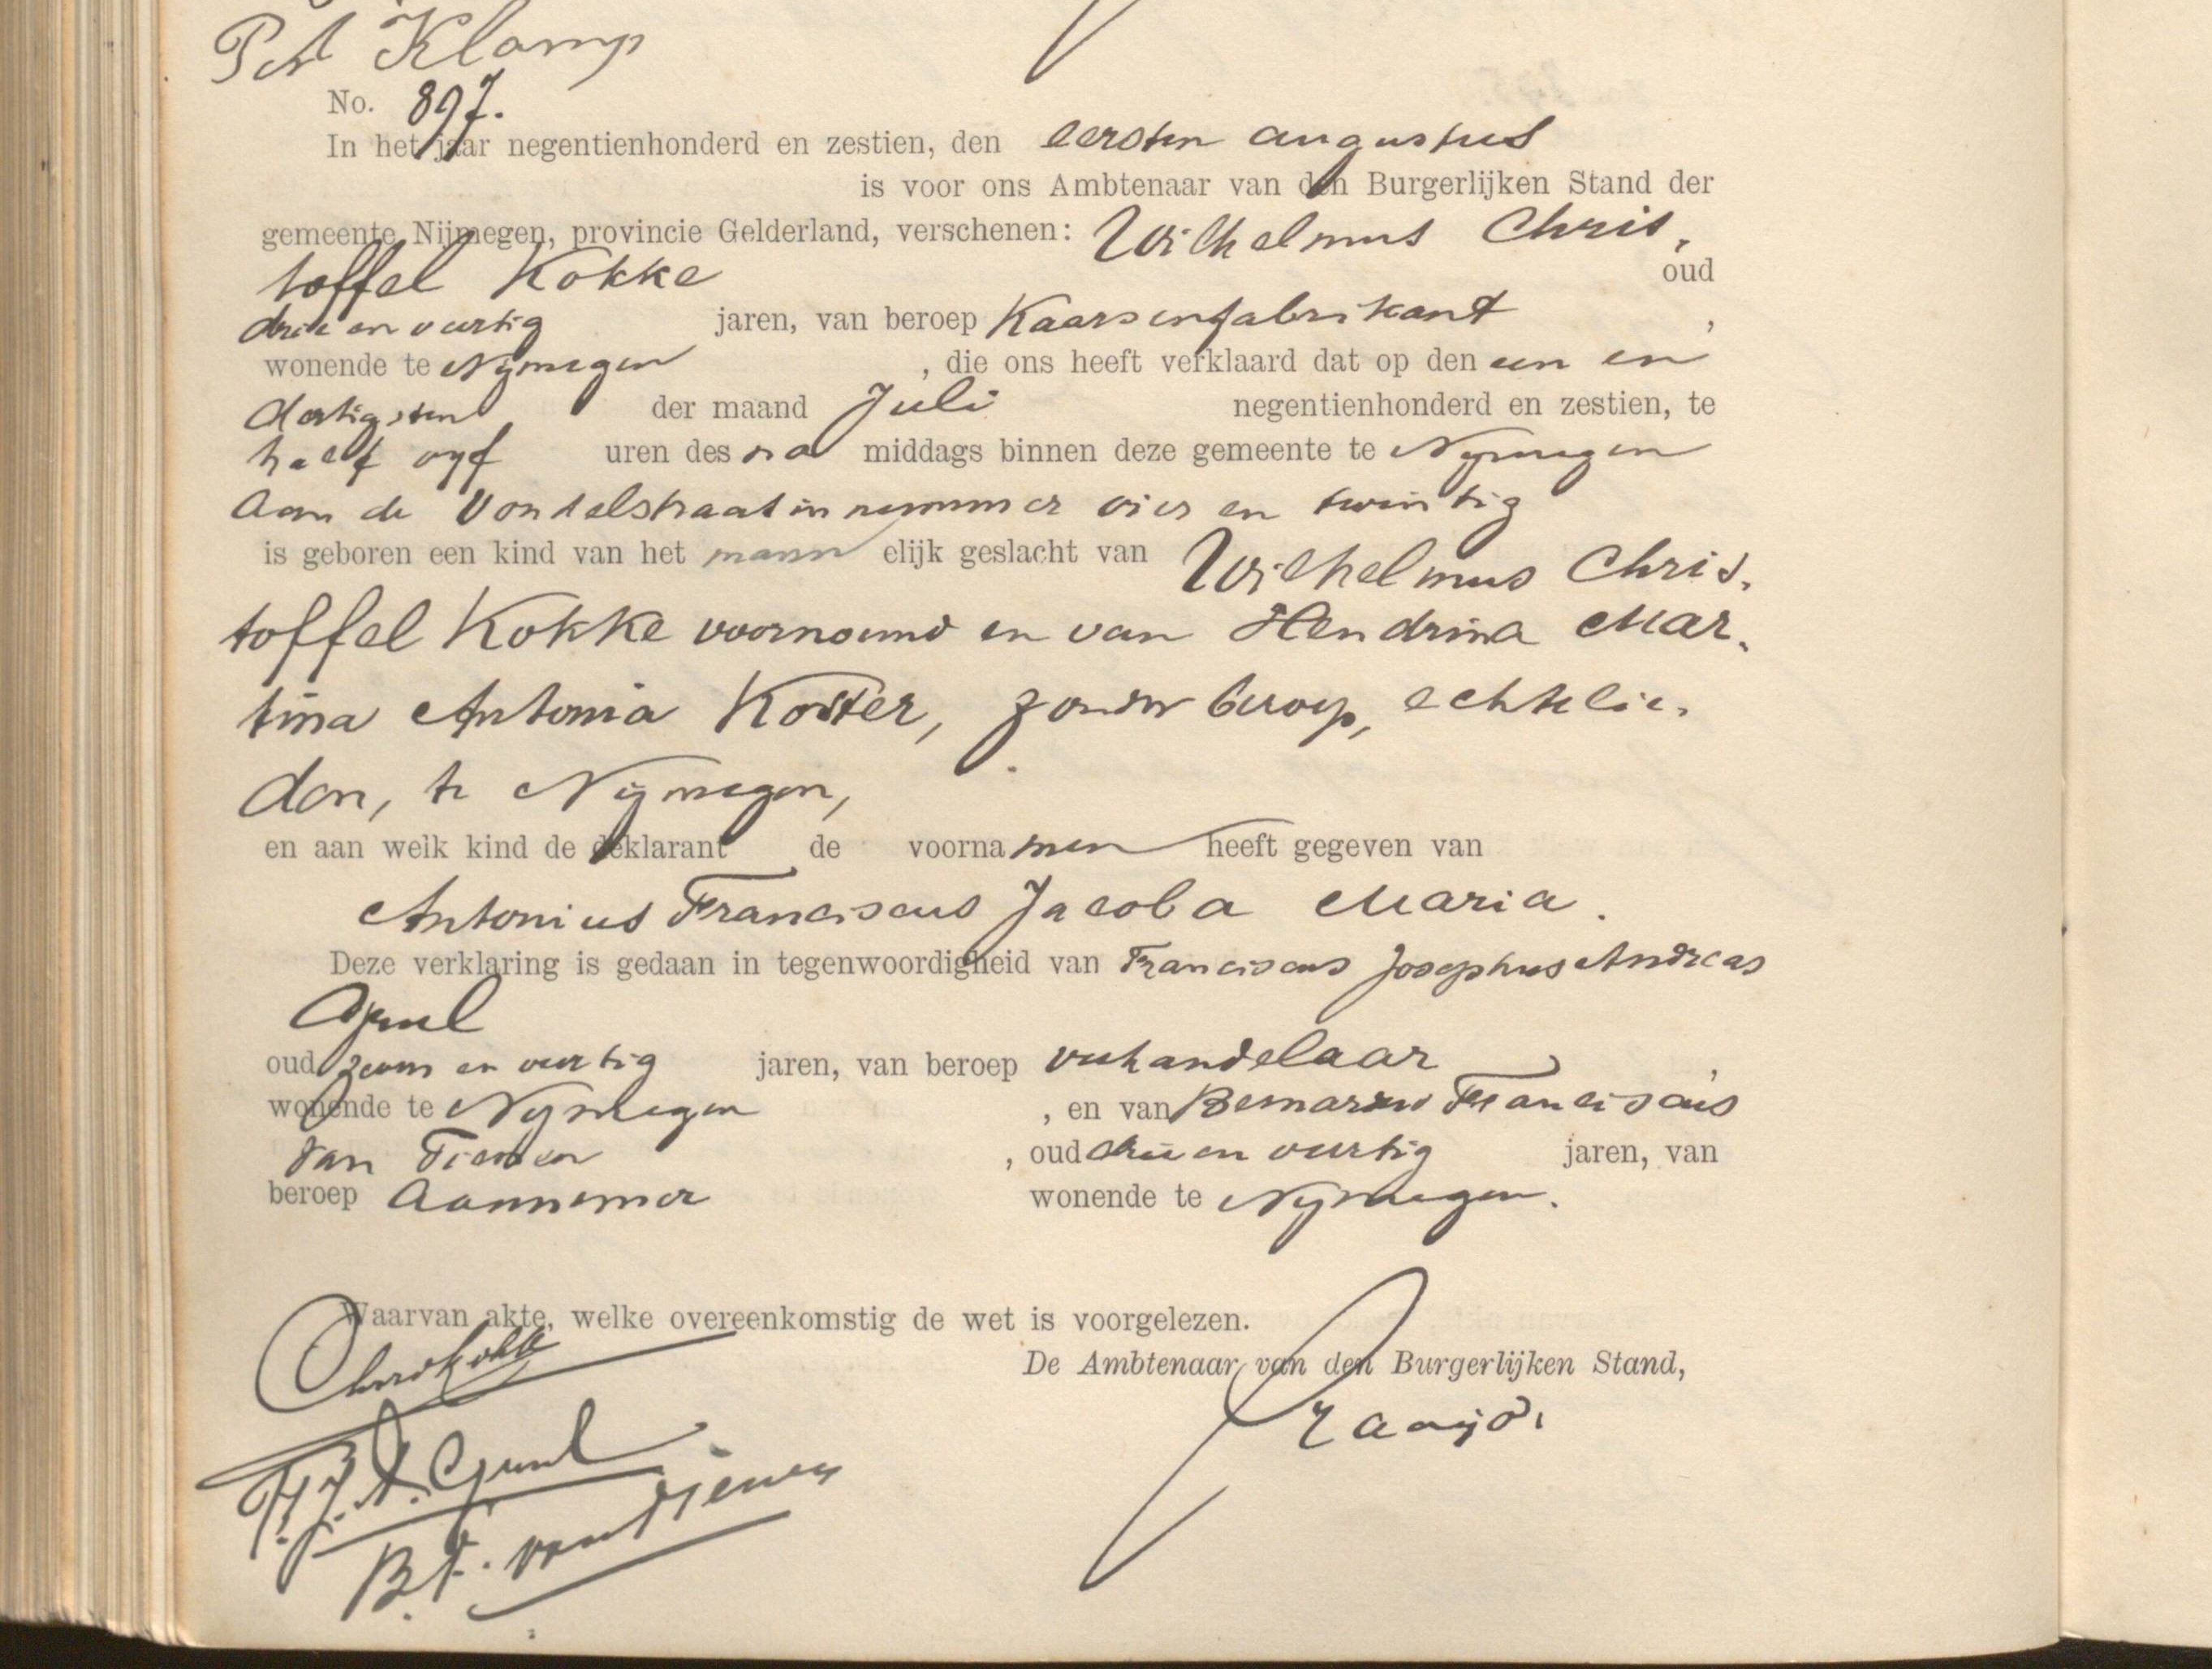 Pet Klomp
No. 897.
In het jaar negentienhonderd en zestien, den eersten augustus
is voor ons Ambtenaar van den Burgerlijken Stand der
gemeente Nijmegen, provincie Gelderland, verschenen: Wilhelmus Chris-
toffel Kokke oud
drie en veertig jaren, van beroep Kaarsenfabrikant ,
wonende te Nijmegen , die ons heeft verklaard dat op den een en
dertigsten der maand Juli negentienhonderd en zestien, te
half vyf uren des na middags binnen deze gemeente te Nijmegen
aan de Vondelstraat in nummer vier en twintig
is geboren een kind van het mann elijk geslacht van Wilhelmus Chris-
toffel Kokke voornoemd en van Hendrina Mar-
tina Antonia Koster, zonder beroep, echtelie-
den, te Nijmegen,
en aan welk kind de deklarant de voorna men heeft gegeven van
Antonius Franciscus Jacoba Maria.
Deze verklaring is gedaan in tegenwoordigheid van Franciscus Josephus Andreas
oud zeven en veertig jaren, van beroep veehandelaar ,
wonende te Nijmegen , en van Bernardus Franciscus
van Tienen , oud drie en veertig jaren, van
beroep Aannemer wonende te Nijmegen.
Waarvan akte, welke overeenkomstig de wet is voorgelezen.
De Ambtenaar van den Burgerlijken Stand,
Chr Kokke
F. J. A.
B. F. van Tienen